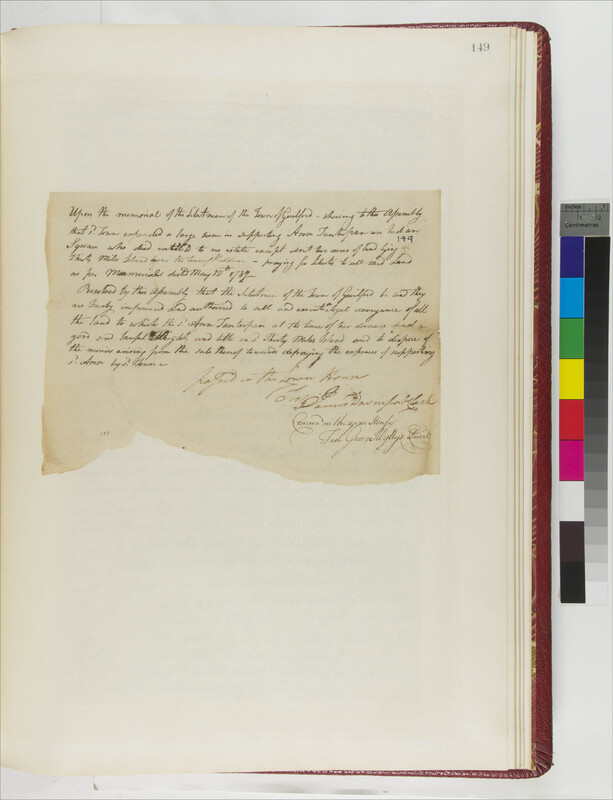 149
Upon the memorial of the Selectmen of the Town of Guilford – shewing to this Assembly
that sd. Town expended a large sum in supporting Aron an Indian
149
Squaw who died entitled to no estate except about two acres of land lying in
Thirty Miles Island – praying for liberty to sell said Land
as per Memorial dated May 12th
Resolved by this Assembly that the Selectmen of the Town of Guilford be and they
are hereby impowered and authorized to sell and legal conveyance of all
the land to which the sd. Aron at the time of her decease had a
good and lawful Right and title in sd. Thirty Miles Island and to dispose of
the monies arising from the Sale thereof towards defraying the expence of supporting
sd. Aron by sd. Town
Passed in the Lower House
Test Davenport Clerk
Concurd in the upper House
Test George Wyllys Secrety